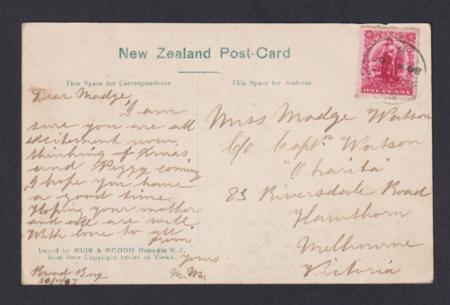 New Zealand Post-Card
This Space for Correspondence.
This Space for Address.
ONE PENNY
Dear Madge
I am
sure you are all
excitement now
thinking of Xmas
and Peggy coming
I hope you have
a good time
Hoping your mother
and all are well
With love to all
from
Yours
M. M.
Issued by MUIR & MOODIE Dunedin N.Z.,
from their Copyright Series of Views.
Broad Bay
Miss Madge Watson
C/o Captn Watson
"Charita"
83 Riversdale Road
Hawthorn
Melbourne
Victoria